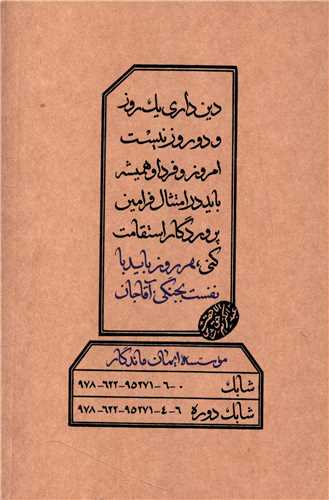 دین‌داری یك روز
و دو روز نیست
امروز و فردا و همیشه
باید در امتثال فرامین
پروردگار استقامت
کنی، هر روز باید با
نفست بجنگی آقاجان
مؤسسه ایمان ماندگار
شابك ۹۷۸-۶۲۲-۹۵۲۷۱-۶-۰
شابك دوره ۹۷۸-۶۲۲-۹۵۲۷۱-۴-۶